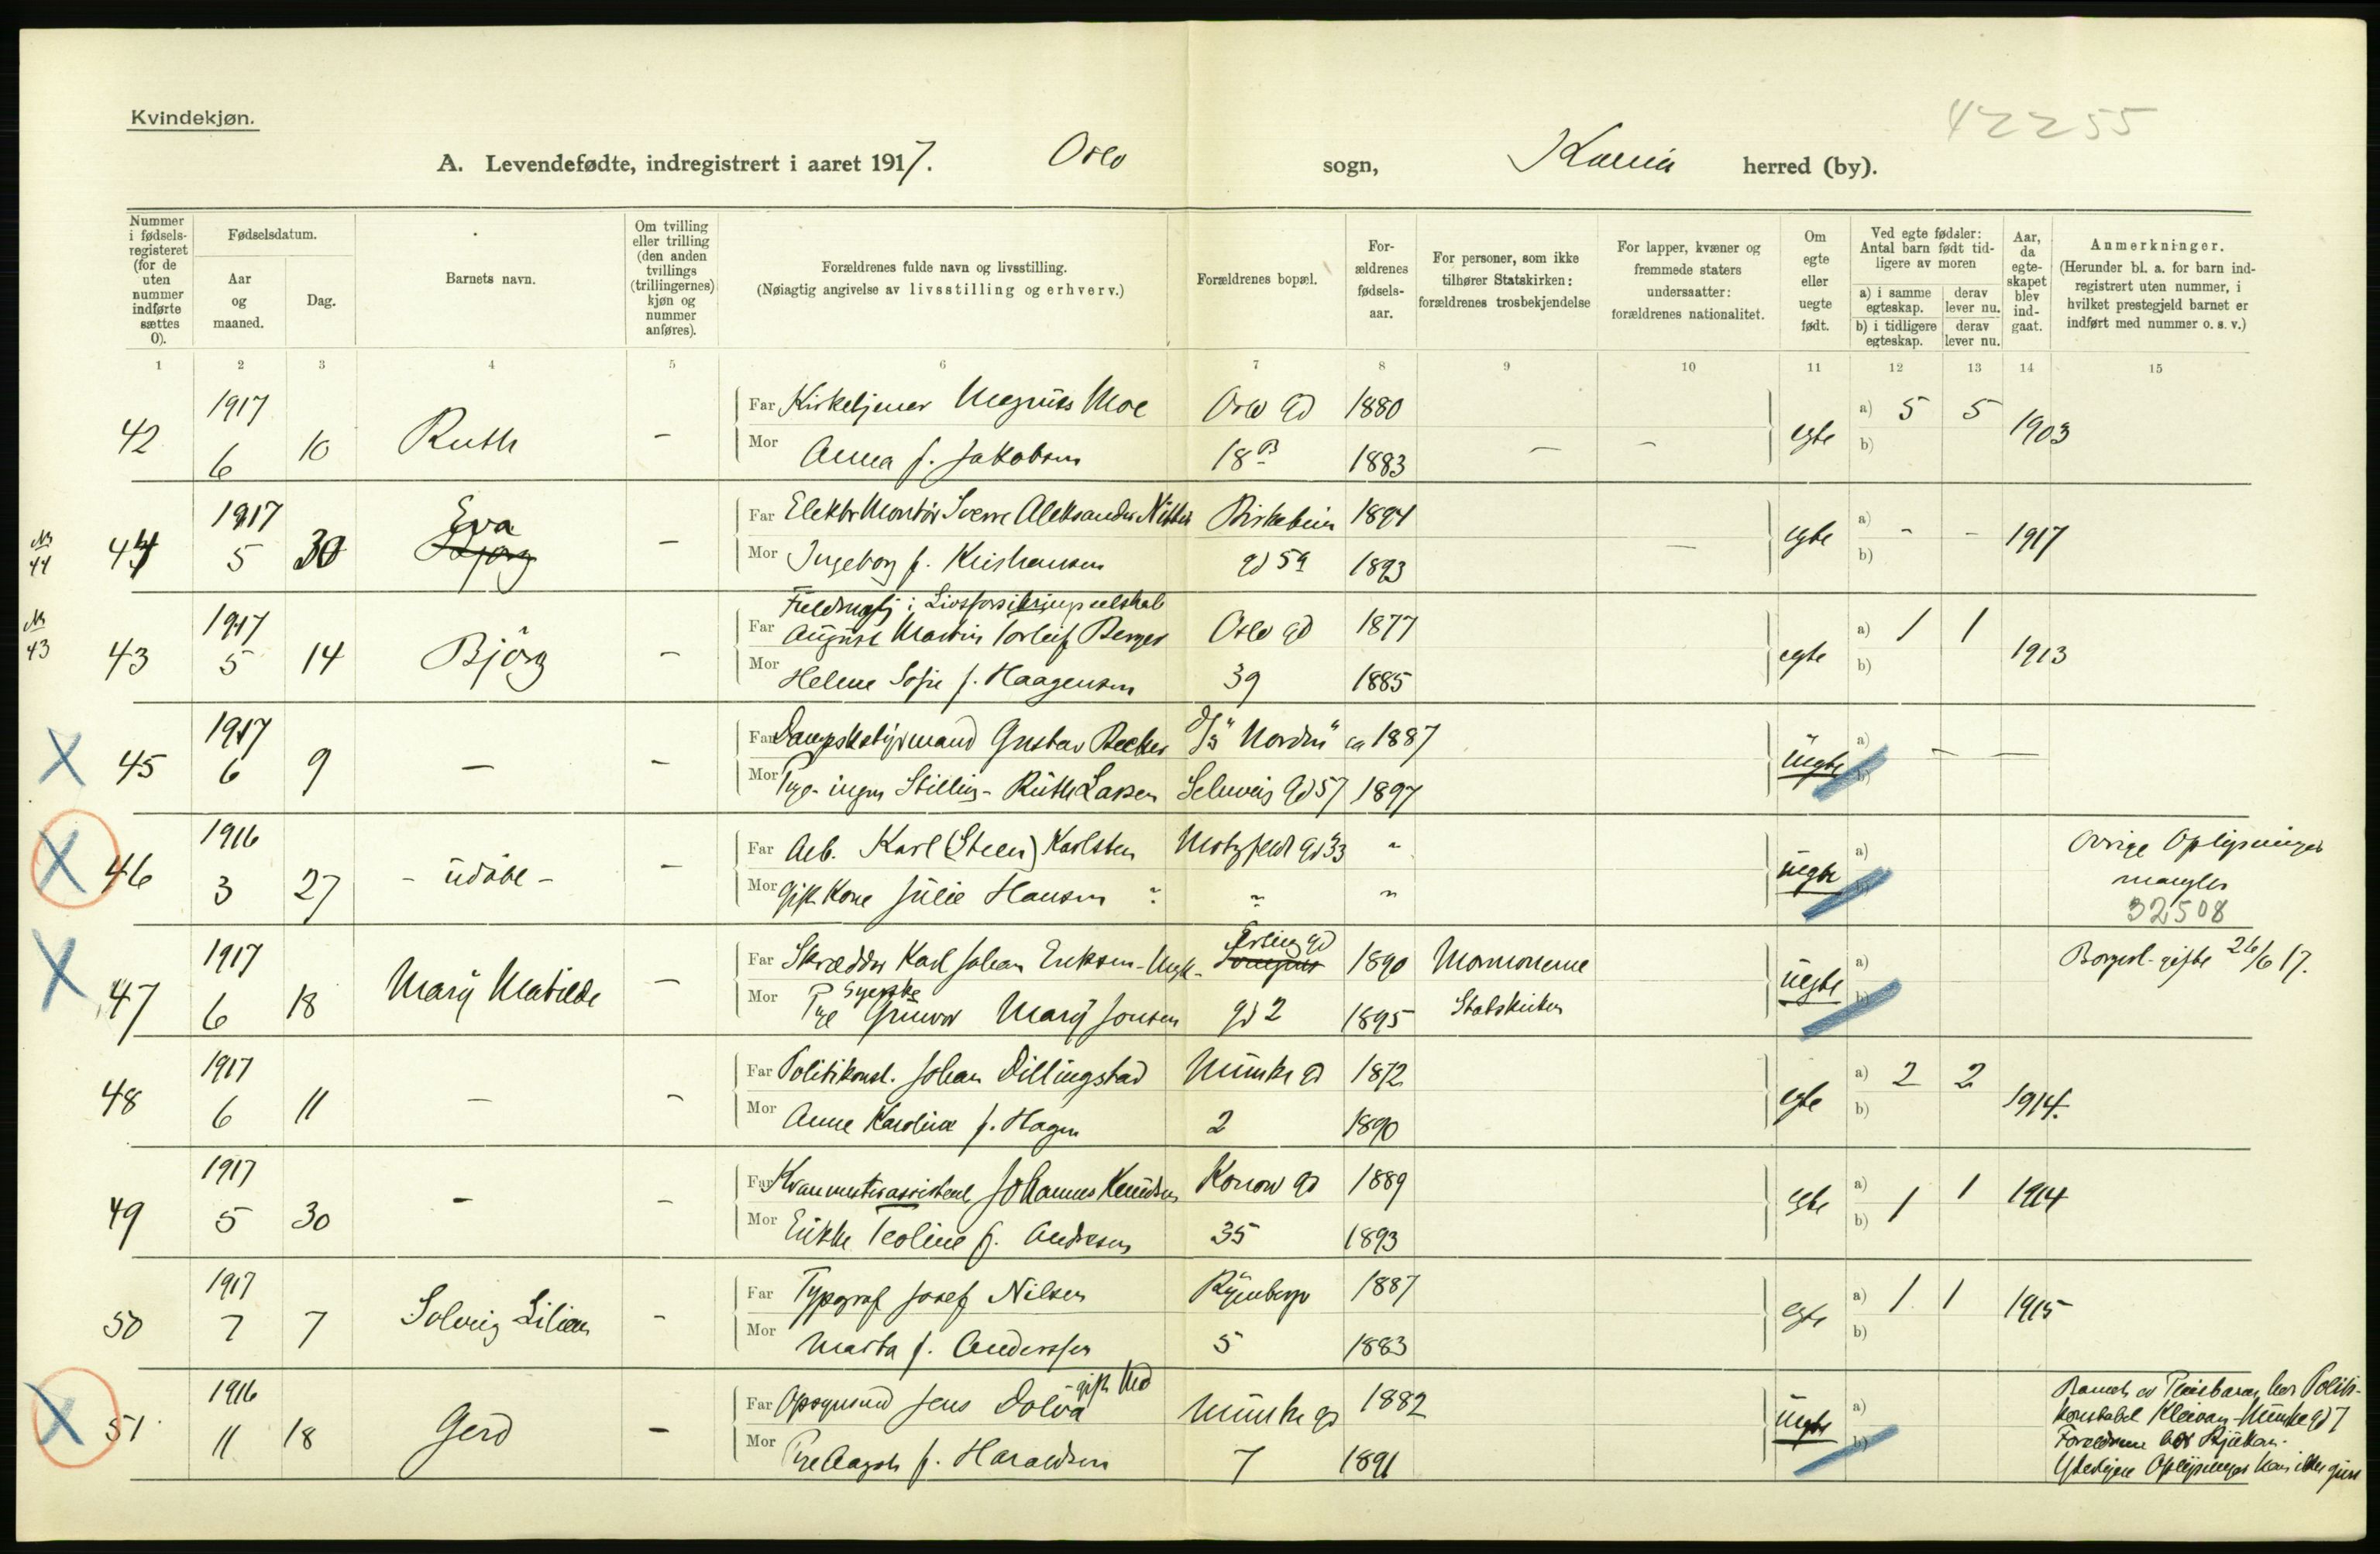 42255
Kvindekjøn.
A. Levendefødte, indregistrert i aaret 1917. Oslo sogn, Krania herred (by).
Nummer i fødselsregisteret (for de uten nummer indførte sættes 0).
Fødselsdatum.
Aar og maaned.
Dag.
Barnets navn.
Om tvilling eller trilling (den anden tvillings (trillingernes) kjøn og nummer anføres).
Forældrenes fulde navn og livsstilling.
(Nøiagtig angivelse av livsstilling og erhverv.)
Forældrenes bopæl.
Forældrenes fødselsaar.
For personer, som ikke tilhører Statskirken: forældrenes trosbekjendelse
For lapper, kvæner og fremmede staters undersaatter: forældrenes nationalitet.
Om egte eller uegte født.
Ved egte fødsler: Antal barn født tidligere av moren
a) i samme egteskap. derav lever nu.
b) i tidligere egteskap. derav lever nu.
Aar, da egteskapet blev indgaat.
Anmerkninger.
(Herunder bl. a. for barn indregistrert uten nummer, i hvilket prestegjeld barnet er indført med nummer o. s. v.)
1 2 3 4 5 6 7 8 9 10 11 12 13 14 15
42 1917 6 10 Ruth - Far Kirketjener Magnus Moe Oslo gd 1880 egte a) 5 5 1903
Mor Anna f. Jakobsen 18B 1883 - - b)
Nr 44 44 1917 5 30 Eva Bjørg - Far Elektr Montör Sverre Aleksander Birkebein 1894 egte a) - - 1917
Mor Ingeborg f. Kristiansen gd 5a 1893 - b)
Nr 43 43 1917 5 14 Bjørg - Far Livsforsikringsselskab
August Martin Torleif Berger Oslo gd 1877 egte a) 1 1 1913
Mor Helene Sofie f. Haagensen 39 1885 b)
45 1917 6 9 - - Far Dampskstyrmand Gustav Becker D/S "Nordm" ca 1887 uegte a) - -
Mor Pige ingen Stilling - Ruth Larsen Schweigs gd 57 1897 b)
46 1916 3 27 - udöbt - - Far Arb. Karl (Steen) Karlsten Motzfeldt gd 33 " uegte a) Övrige Oplysninger
Mor gift Kone Julie Hansen " " " b) mangler
32508
47 1917 6 18 Mary Matilde - Far Skrædder Karl Johan Eriksen - Ungk - Erling gd 1890 Mormonerne uegte a) Borgerl. gifte 26/6 17.
Mor Pige Syerske Gunvor Mary Jonsen gd 2 1895 Statskirken b)
48 1917 6 11 - - Far Politikonst. Johan Dillingstad Munke gd 1872 egte a) 2 2 1914.
Mor Anne Karoline f. Hagen 2 1890 b)
49 1917 5 30 - - Far Kranmesterassistent Johannes Knudsen Konow gd 1889 egte a) 1 1914
Mor Erikke Teoline f. Andresen 35 1893 b) 1
50 1917 7 7 Solveig Lilian - Far Typograf Josef Nilsen Ryenbergv 1887 egte a) 1 1 1915
Mor Marta f. Anderssen 5 1883 b)
51 1916 11 18 Gerd - Far Opsynsmd Jens Dolva gift Md Munke gd 1882 uegte a) Barnet er Pleiebarn hos Politikonstabel Kleivan - Munke gd 7
Mor Pige Aagot f. Haraldsen 7 1891 b) Forældrene bor Rjukan.
Yderligere Oplysninger kan ikke gives